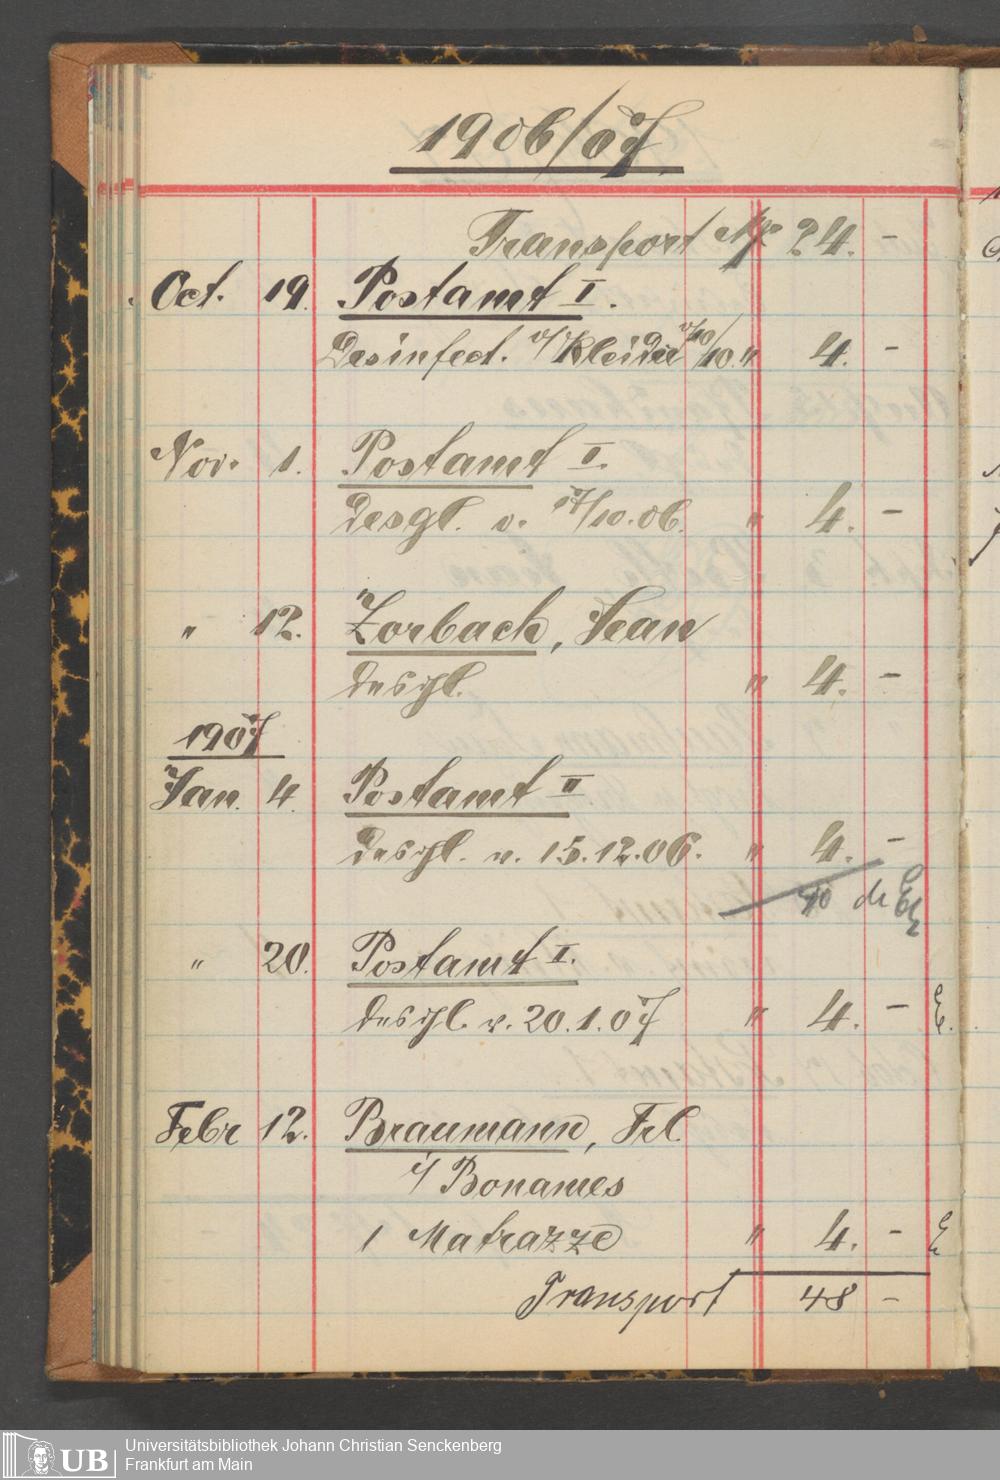 1906/07.
Transport Mk 24. -
Oct. 19. Postamt I.
Desinfect. v/ Kleider v/10/10. " 4. -
Nov. 1. Postamt II.
Desgl. v. 17/10.06. " 4. -
" 12. Zorbach, Jean
desgl. " 4. -
1907
Jan. 4. Postamt II
desgl. v. 15.12.06. " 4. -
40
" 20. Postamt I.
desgl. v. 20.1.07 " 4. -
Febr 12. Braumann, Frl
i/ Bonames
1 Matrazze " 4. -
Transport 48 -
UB Universitätsbibliothek Johann Christian Senckenberg
Frankfurt am Main